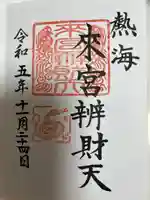 熱海
來宮辨財天
令和五年十一月二十四日